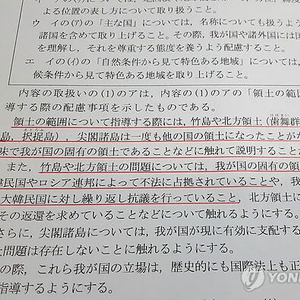 位置の表し方について取り扱うこと。
ウ イの(ア)の「主な国」については，名称についても扱うよう
諸国を含めて取り上げること。その際，我が国や諸外国には国
を理解し，それを尊重する態度を養うよう配慮すること。
エ イの(イ)の「自然条件から見て特色ある地域」については，
候条件から見て特色ある地域を取り上げること。
内容の取扱いの(1)のアは，内容の(1)のアの「領土の範
際の配慮事項を示したものである。
領土の範囲について指導する際には，竹島や北方領土（歯舞群
島，択捉島），尖閣諸島は一度も他の国の領土になったことが
味で我が国の固有の領土であることなどに触れて説明すること
また，竹島や北方領土の問題については，我が国の固有の領
韓民国やロシア連邦によって不法に占拠されていることや，
大韓民国に対し繰り返し抗議を行っていること，北方領土に
その返還を求めていることなどについて触れるようにする。
さらに，尖閣諸島については，我が国が現に有効に支配する
土問題は存在しないことに触れるようにする。
の際，これら我が国の立場は，歴史的にも国際法上も正
指導するようにする。
YON